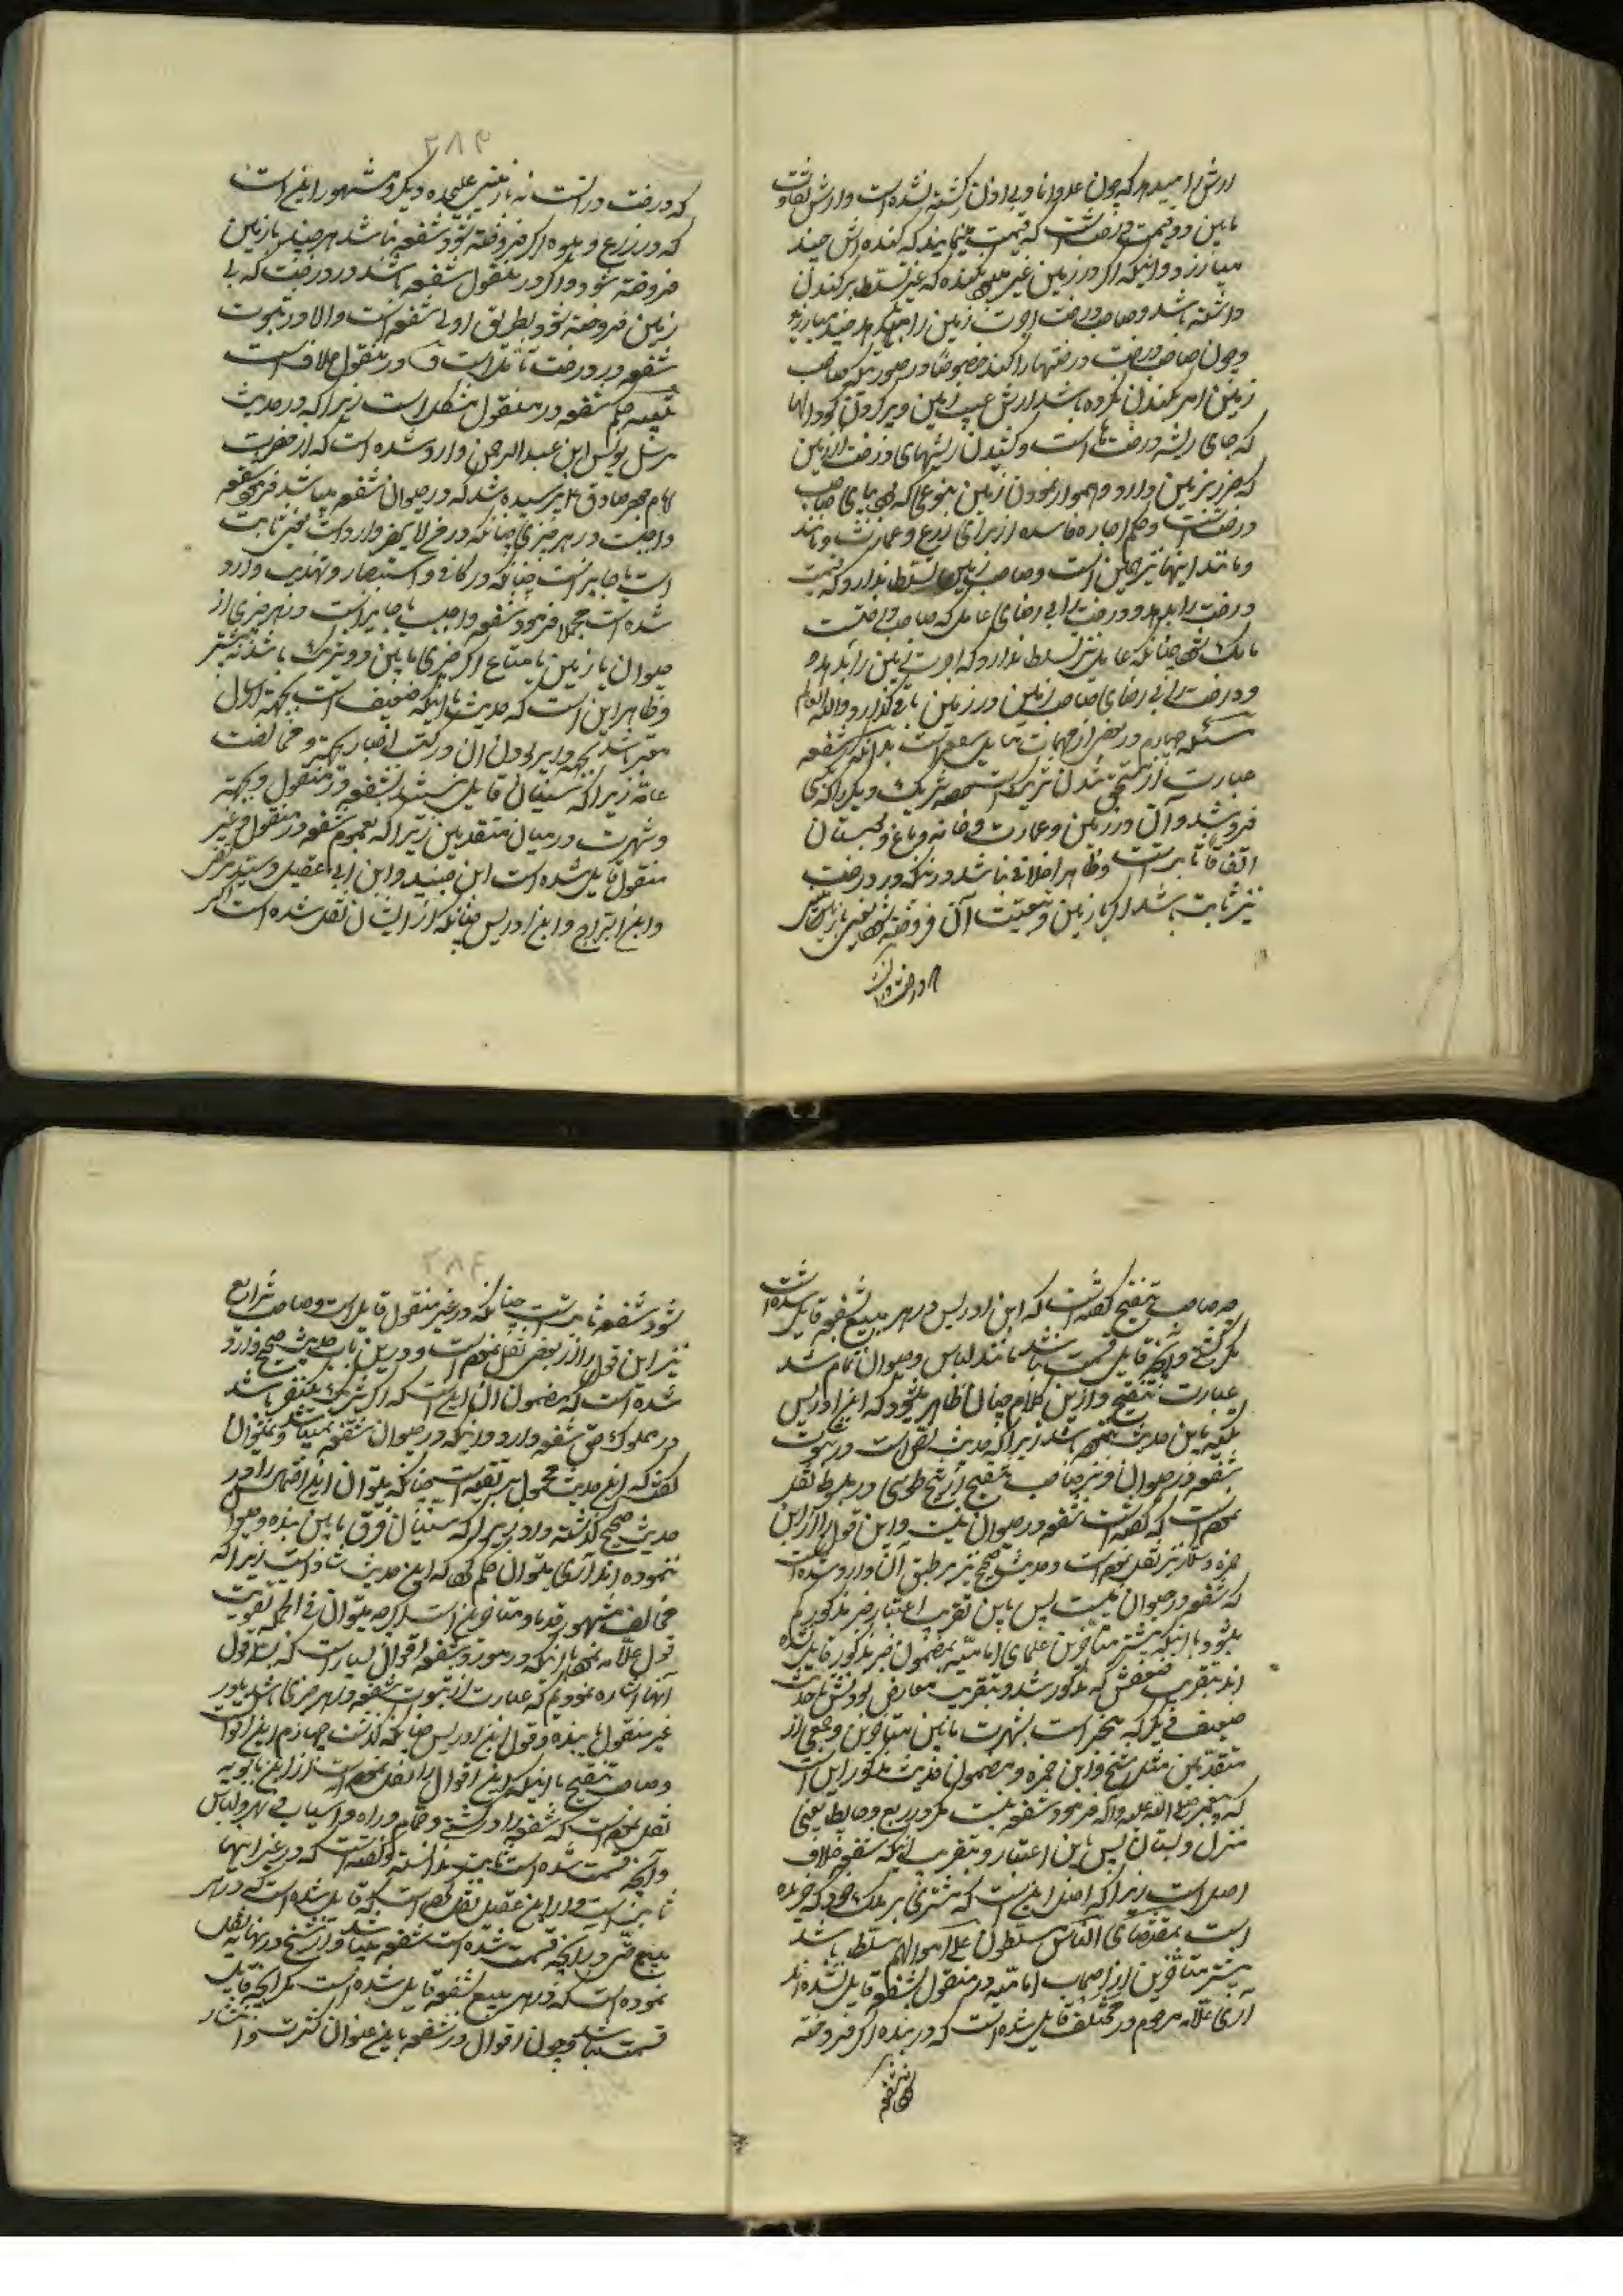 ارش را میدهد که چون عدوانا و بی اذن کشته نشده است و ارش تفاوت
مابین دو قیمت درختست که قیمت مینمایند که کنده اش چند
میارزد و اینکه اگر در زمین غیر
داشته باشد و صاحب درخت اجرت زمین را
و چون صاحب درخت درختها را کند خصوصا در صورتیکه صاحب
زمین امر بکندن نکرده باشد ارش عیب زمین و پر کردن گودالها
که جای ریشه درختها است و کشیدن ریشهای درخت از زمین
که ضرر بزمین دارد و هموار نمودن زمین بنوعی که
درختست و حکم اجاره فاسده از برای زرع و عمارت و مانند
و مانند اینها نیز همین است و صاحب زمین تسلط ندارد که قیمت
درخت را بدهد و درخت را بی رضای عامل که صاحب درختست
مالک شود چنانکه عامل نیز تسلط ندارد که اجرت زمین را بدهد
و درخت را بی رضای صاحب زمین در زمین باقی گذارد والله العالم
مسئله چهارم در بعضی از مهمات شفعه است بدانکه شفعه
عبارت از مستحق شدن شریک است حصه شریک دیگر را که
فروشد و آن در زمین و عمارت و خانه و باغ و بستان
اتفاقا ثابتست و ظاهرا خلافی نباشد در اینکه در درخت
نیز ثابت باشد اگر با زمین و بتبعیت آن فروخته شود یعنی
که درخت در آنست نه با زمین علیحده دیگر و مشهور این است
که در زرع و میوه اگر فروخته شود شفعه نباشد هر چند با زمین
فروخته شود و اگر در منقول شفعه باشد در درخت که بی
زمین فروخته شود بطریق اولی شفعه است والا در ثبوت
شفعه در درخت تأمل است و در منقول خلاف است
حکم شفعه در منقول مشکل است زیرا که در حدیث
مرسل یونس ابن عبدالرحمن وارد شده است که از حضرت
امام جعفر صادق پرسیده شد که در حیوان شفعه میباشد فرمود شفعه
واجبست در هر چیزی چنانکه در من لا یحضر وارد است یعنی ثابت
است یا جایز است چنانکه در کافی و استبصار و تهذیب وارد
شده است مجملا فرمود شفعه واجب یا جایز است در هر چیزی از
حیوان یا زمین یا متاع اگر چیزی مابین دو شریک باشد نه بیشتر
و ظاهر این است که حدیث با اینکه ضعیف است بجهة ارسال
معتبر باشد بجهة وارد بودن آن در کتب اخبار بجهة و مخالفت
عامه زیرا که سنیان قایل نیستند بشفعه در منقول و بجهة
و شهرت در میان متقدمین زیرا که بعموم شفعه در منقول و غیر
منقول قایل شده است ابن جنید و ابن ابی عقیل و سید مرتضی
و ابن البراج و ابن ادریس چنانکه از ایشان نقل شده است اگر
چه صاحب تنقیح گفته است که ابن ادریس در هر مبیع بشفعه قایل شده است
مگر کشتی و آنچه قابل قسمت نباشد مانند لباس و حیوان تمام شد
عبارت تنقیح و از این کلام چنان ظاهر میشود که ابن ادریس
عمل باین حدیث ننموده باشد زیرا که حدیث نص است در ثبوت
شفعه در حیوان و نیز صاحب تنقیح از شیخ طوسی در مبسوط نقل
نموده است که گفته است شفعه در حیوان نیست و این قول را از ابن
حمزه و سلار نیز نقل نموده است و حدیث صحیح نیز بر طبق آن وارد شده است
که شفعه در حیوان نیست پس باین تقریب اعتبار خبر مذکور کم
میشود با اینکه بیشتر متأخرین علمای امامیه بمضمون خبر مذکور قایل نشده
اند بتقریب ضعفش که مذکور شد و بتقریب معارض بودنش با حدیث
ضعیف دیگر که منجبر است بشهرت مابین متأخرین و جمعی از
متقدمین مثل شیخ و ابن حمزه و مضمون حدیث مذکور این است
که پیغمبر صلی الله علیه وآله فرمود شفعه نیست مگر در ربع و حایط یعنی
منزل و بستان پس باین اعتبار و بتقریب اینکه شفعه خلاف
اصل است زیرا که اصل این است که مشتری بر ملک خود که خریده
است بمقتضای الناس مسلطون علی اموالهم مسلط باشد
بیشتر متأخرین از اصحاب امامیه در منقول بشفعه قایل نشده اند
آری علامه مرحوم در مختلف قایل شده است که در بنده اگر فروخته
شود شفعه ثابتست چنانکه در غیر منقول قایل است و صاحب شرایع
نیز این قول را از بعض نقل نموده است و در این باب حدیث صحیح وارد
شده است که مضمون آن این است که اگر شریک یکنفر باشد
در مملوک حق شفعه دارد و اینکه در حیوان شفعه نمیباشد و میتوان
گفت که این حدیث محمول بر تقیه است چنانکه میتوان این احتمال را در
حدیث صحیح گذشته داد زیرا که سنیان فرق مابین بنده و حیوان
ننموده اند آری میتوان حکم نمود که این حدیث شاذ است زیرا که
مخالف مشهور قدما و متأخرین است اگر چه میتوان فی الجمله تقویت
قول علامه نمود با اینکه در مورد شفعه اقوال بسیار است که بسه قول
آنها اشاره نمودیم که عبارت از ثبوت شفعه در هر چیزی باشد یا در
غیر منقول یا بنده و قول ابن ادریس چنانکه گذشت چهارم این اقوال
و صاحب تنقیح با اینکه این اقوال را نقل نموده است از ابن بابویه
نقل نموده است که شفعه را در کشتی و حمام و راه و آسیاب و نهر و لباس
و آنچه قسمت شده است ثابت ندانسته و گفته است که در غیر اینها
ثابت است و از ابن عقیل نقل نموده است که قایل شده است که در هر
مبیع حتی در آنچه قسمت شده است شفعه میباشد و از شیخ در نهایه نقل
نموده است که در هر مبیع بشفعه قایل شده است مگر آنچه قابل
قسمت نباشد و چون اقوال در شفعه باین عنوان کثرت و انتشار